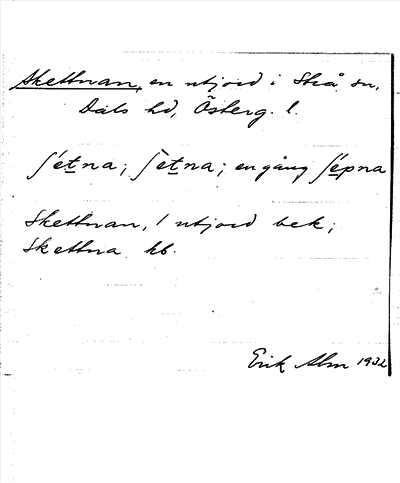 Skettnan, en utjord i Strå sn,
Dals hd, Österg. l.
ʃétna; ʃètna; en gång ʃépna
Skettnan, 1 utjord bek;
Skettna kb.
Erik Alm 1932